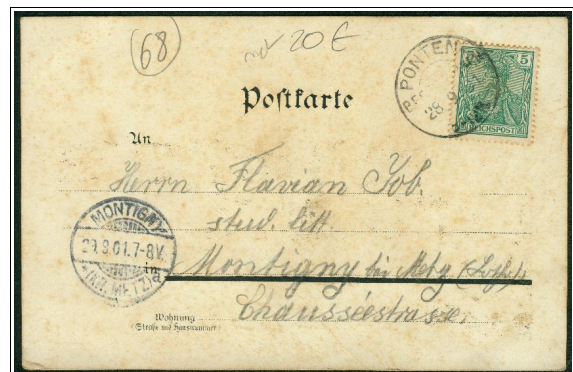 68
20 €
PONTEN
28 9
5
REICHSPOST
Postkarte
An
Herrn Flavian Job.
stud. litt.
MONTIGNY
29.9.01.7-8V.
(KR. METZ) a
in Montigny bei Metz (Lothr.)
Chausséestrasse.
Wohnung
(Straße und Hausnummer)